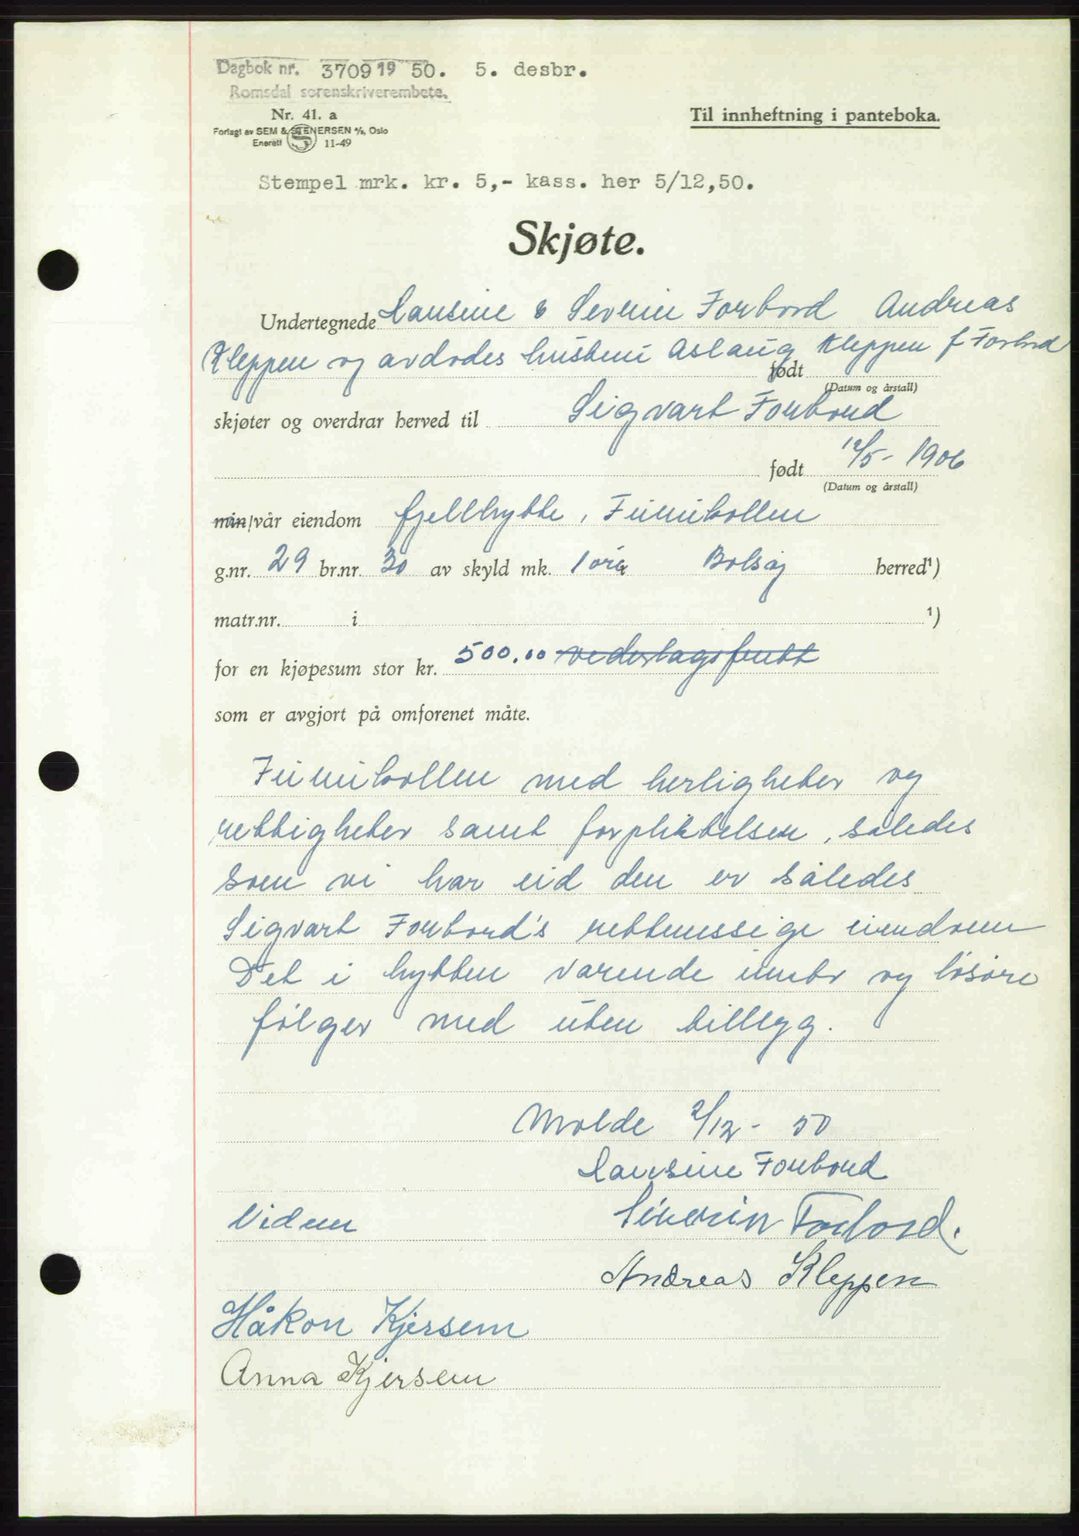 Dagbok nr. 3709 19 50. 5. desbr.
Romsdal sorenskriverembete.
Nr. 41. a
Til innheftning i panteboka.
Forlagt av SEM & STENERSEN A/S, Oslo
Enerett 11-49
Stempel mrk. kr. 5,- kass. her 5/12,50.
Skjøte.
Undertegnede Lausine & Severin Forbord Andreas
Kleppen og avdødes hustru Aslaug Kleppen f Forbord
født
(Datum og årstall)
skjøter og overdrar herved til Sigvart Forbord
født 12/5- 1906
(Datum og årstall)
min/vår eiendom fjellhytte, Finnikollen
g.nr. 29 br.nr. 30 av skyld mk. 1 øre Bolsøy herred¹)
matr.nr. i ¹)
for en kjøpesum stor kr. 500.00 vederlagsfritt
som er avgjort på omforenet måte.
Finnikollen med herligheter og
rettigheter samt forpliktelser, således
som vi har eid den er således
Sigvart Forbord's rettmessige eiendom
Det i hytten varende innbo og løsøre
følger med uten tillegg.
Molde 2/12- 50
Laursine Forbord
Vidne Severin Forbord.
Andreas Kleppen
Håkon Kjersem
Anna Kjersem